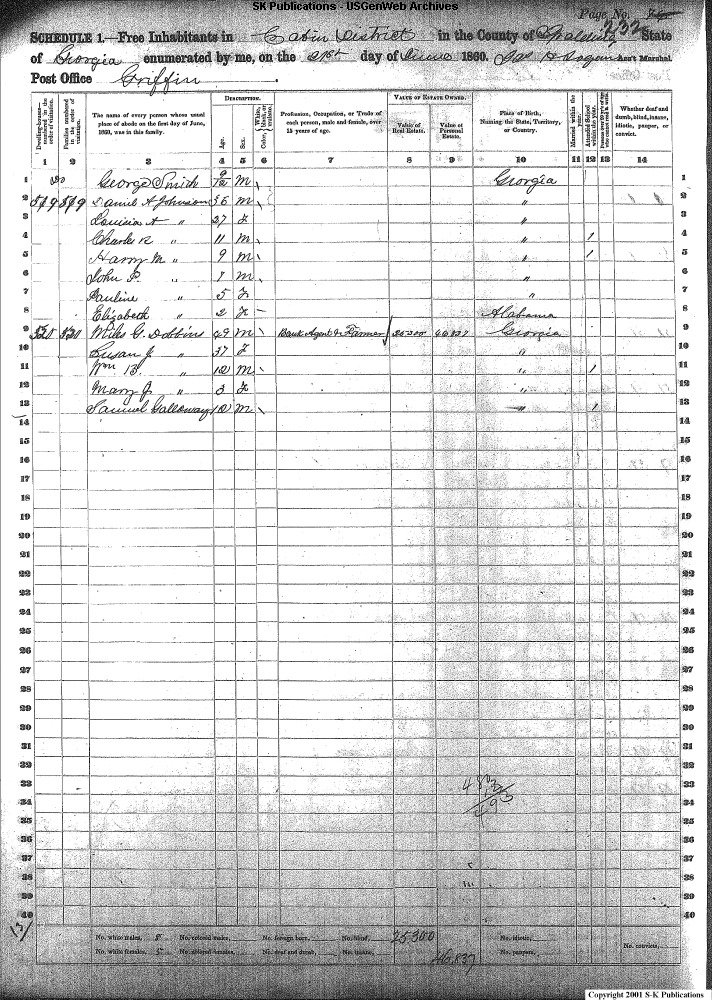 SK Publications - USGenWeb Archives
Page No. 232
SCHEDULE 1.—Free Inhabitants in Cabin District in the County of Spalding State
of Georgia enumerated by me, on the 21st day of June 1860. Ass't Marshal.
Post Office Griffin
Dwelling-houses— numbered in the order of visitation.
Families numbered in the order of visitation.
The name of every person whose usual place of abode on the first day of June, 1860, was in this family.
DESCRIPTION.
Age.
Sex.
Color, White, black, or mulatto.
Profession, Occupation, or Trade of each person, male and female, over 15 years of age.
VALUE OF ESTATE OWNED.
Value of Real Estate.
Value of Personal Estate.
Place of Birth, Naming the State, Territory, or Country.
Married within the year.
Attended School within the year.
Whether deaf and dumb, blind, insane, idiotic, pauper, or convict.
1 2 3 4 5 6 7 8 9 10 11 12 13 14
1 George Smith 9/12 M \ Georgia 1
2 519 519 Daniel A Johnson 36 M \ " 2
3 Louisia A " 27 F " 3
4 Charls R " 11 M \ " 1 4
5 Harry M " 9 M \ " 1 5
6 John P. " 7 M \ " 6
7 Pauline " 5 F " 7
8 Elizabeth " 2 F – Alabama 8
9 520 520 Miles G. Dobbins 49 M \ Bank Agent & Farmer 25300 46837 Georgia 9
10 Susan J " 37 F " 10
11 Wm B " 12 M \ " 1 11
12 Mary J " 3 F " 12
13 Samuel Galloway 12 M \ " 1 13
14 14
15 15
16 16
17 17
18 18
19 19
20 20
21 21
22 22
23 23
24 24
25 25
26 26
27 27
28 28
29 29
30 30
31 31
32 32
33 33
34 34
35 35
36 36
37 37
38 38
39 39
40 40
13
No. white males, 8 No. colored males, No. foreign born, No. blind, 25300 No. idiotic,
No. white females, 5 No. colored females, No. deaf and dumb, No. insane, 46,837 No. paupers, No. convicts,
Copyright 2001 S-K Publications